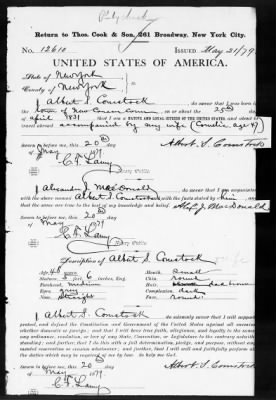 Return to Thos. Cook & Son, 261 Broadway, New York City.
No. 12610 Issued May 21/79
UNITED STATES OF AMERICA.
State of New York
County of New York
I Albert S. Comstock, do swear that I was born in
the town of New Canaan, Conn. on or about the 25th day
of April 1831
that I am a NATIVE AND LOYAL CITIZEN OF THE UNITED STATES, and about to
travel abroad accompanied by my wife
Sworn to before me, this 20th
day of May 1879
Albert S. Comstock
Notary Public.
I Alexander J. MacDonald, do swear that I am acquainted
with the above named Albert S. Comstock and that the facts stated by him
above are true to the best of my knowledge and belief.
Sworn to before me, this 20th
day of May 1879
Alex J. MacDonald
Notary Public.
Description of Albert S. Comstock
Age, 48 years Mouth, Small
Stature, 5 feet 6 inches, Eng. Chin, round
Forehead, medium Hair, dark brown
Eyes, gray Complexion, dark
Nose, Straight Face, round
I Albert S. Comstock do solemnly swear that I will support,
protect, and defend the Constitution and Government of the United States against all enemies,
whether domestic or foreign; and that I will bear true faith, allegiance, and loyalty to the same,
any ordinance, resolution, or law of any State, Convention, or Legislature to the contrary notwith-
standing; and further, that I do this with a full determination, pledge, and purpose, without any
mental reservation or evasion whatsoever; and further, that I will well and faithfully perform all
the duties which may be required of me by law. So help me God.
Sworn to before me, this
20 day of
May 1879
Albert S. Comstock